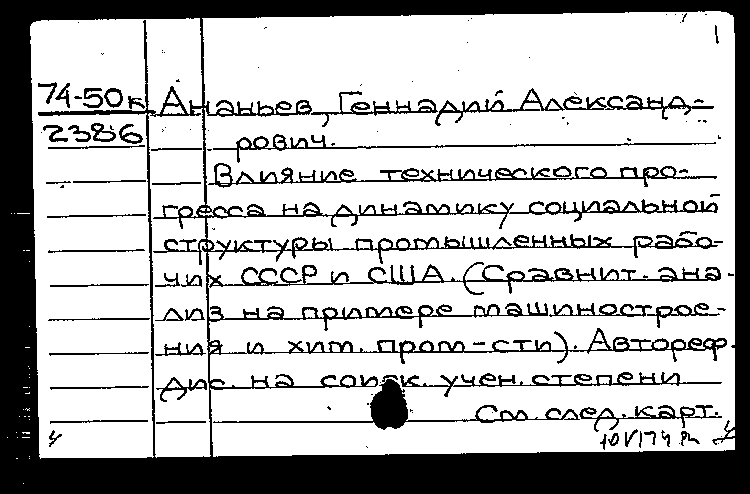 1
74-50к Ананьев, Геннадий Александ-
2386 рович.
Влияние технического про-
гресса на динамику социальной
структуры промышленных рабо-
чих СССР и США. (Сравнит. ана-
лиз на примере машинострое-
ния и хим. пром-сти). Автореф.
дис. на соиск. учен. степени
См. след. карт.